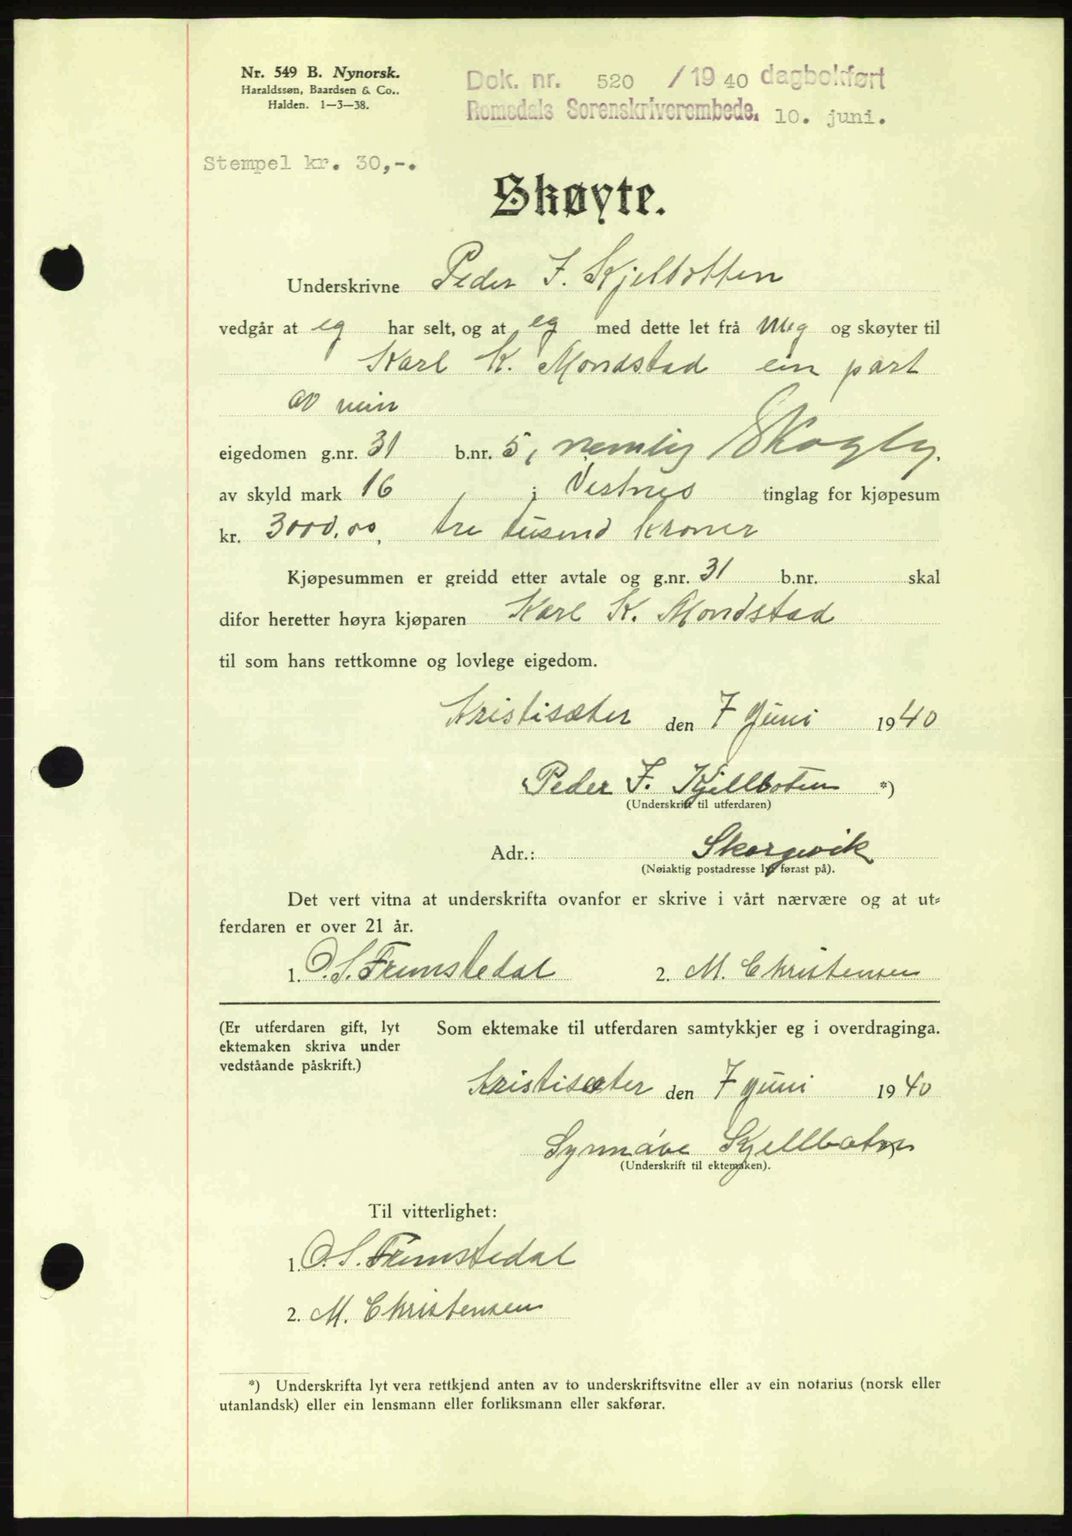 Nr. 549 B. Nynorsk.
Haraldssøn, Baardsen & Co..
Halden. 1—3—38.
Dok. nr. 520 /1940 dagbokført
Romsdals Sorenskriverembede. 10. juni.
Stempel kr. 30,-.
Skøyte.
Underskrivne Peder J. Kjelbotten
vedgår at eg har selt, og at eg med dette let frå meg og skøyter til
Karl K. Mondstad ein part
av min
eigedomen g.nr. 31 b.nr. 5, nemlig Skogly.
av skyld mark 16 , i Vestnes tinglag for kjøpesum
kr. 3000.00, tre tusend kroner
Kjøpesummen er greidd etter avtale og g.nr. 31 b.nr. skal
difor heretter høyra kjøparen Karl K. Mondstad
til som hans rettkomne og lovlege eigedom.
Kristisæter den 7 juni 1940
Peder J. Kjellboten *)
(Underskrift til utferdaren)
Adr.: Skorgevik
(Nøiaktig postadresse lyt førast på).
Det vert vitna at underskrifta ovanfor er skrive i vårt nærvære og at ut-
ferdaren er over 21 år.
1. O. S. Frimstedal 2. M. Christensen
(Er utferdaren gift, lyt
ektemaken skriva under
vedståande påskrift.)
Som ektemake til utferdaren samtykkjer eg i overdraginga.
Kristisæter den 7 juni 1940
Synnøve Kjellboten
(Underskrift til ektemaken).
Til vitterlighet:
1. O. S. Frimstedal
2. M. Christensen
*) Underskrifta lyt vera rettkjend anten av to underskriftsvitne eller av ein notarius (norsk eller
utanlandsk) eller ein lensmann eller forliksmann eller sakførar.